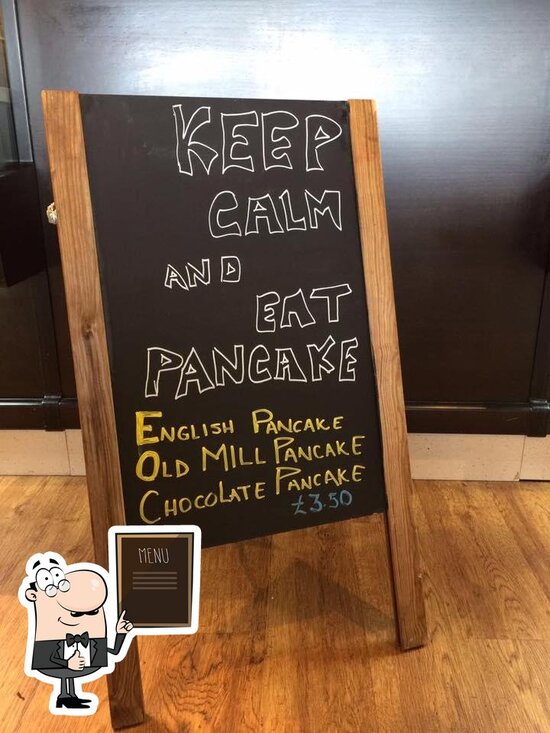 KEEP
CALM
AND
EAT
PANCAKE
ENGLISH PANCAKE
OLD MILL PANCAKE
CHOCOLATE PANCAKE
£3.50
MENU